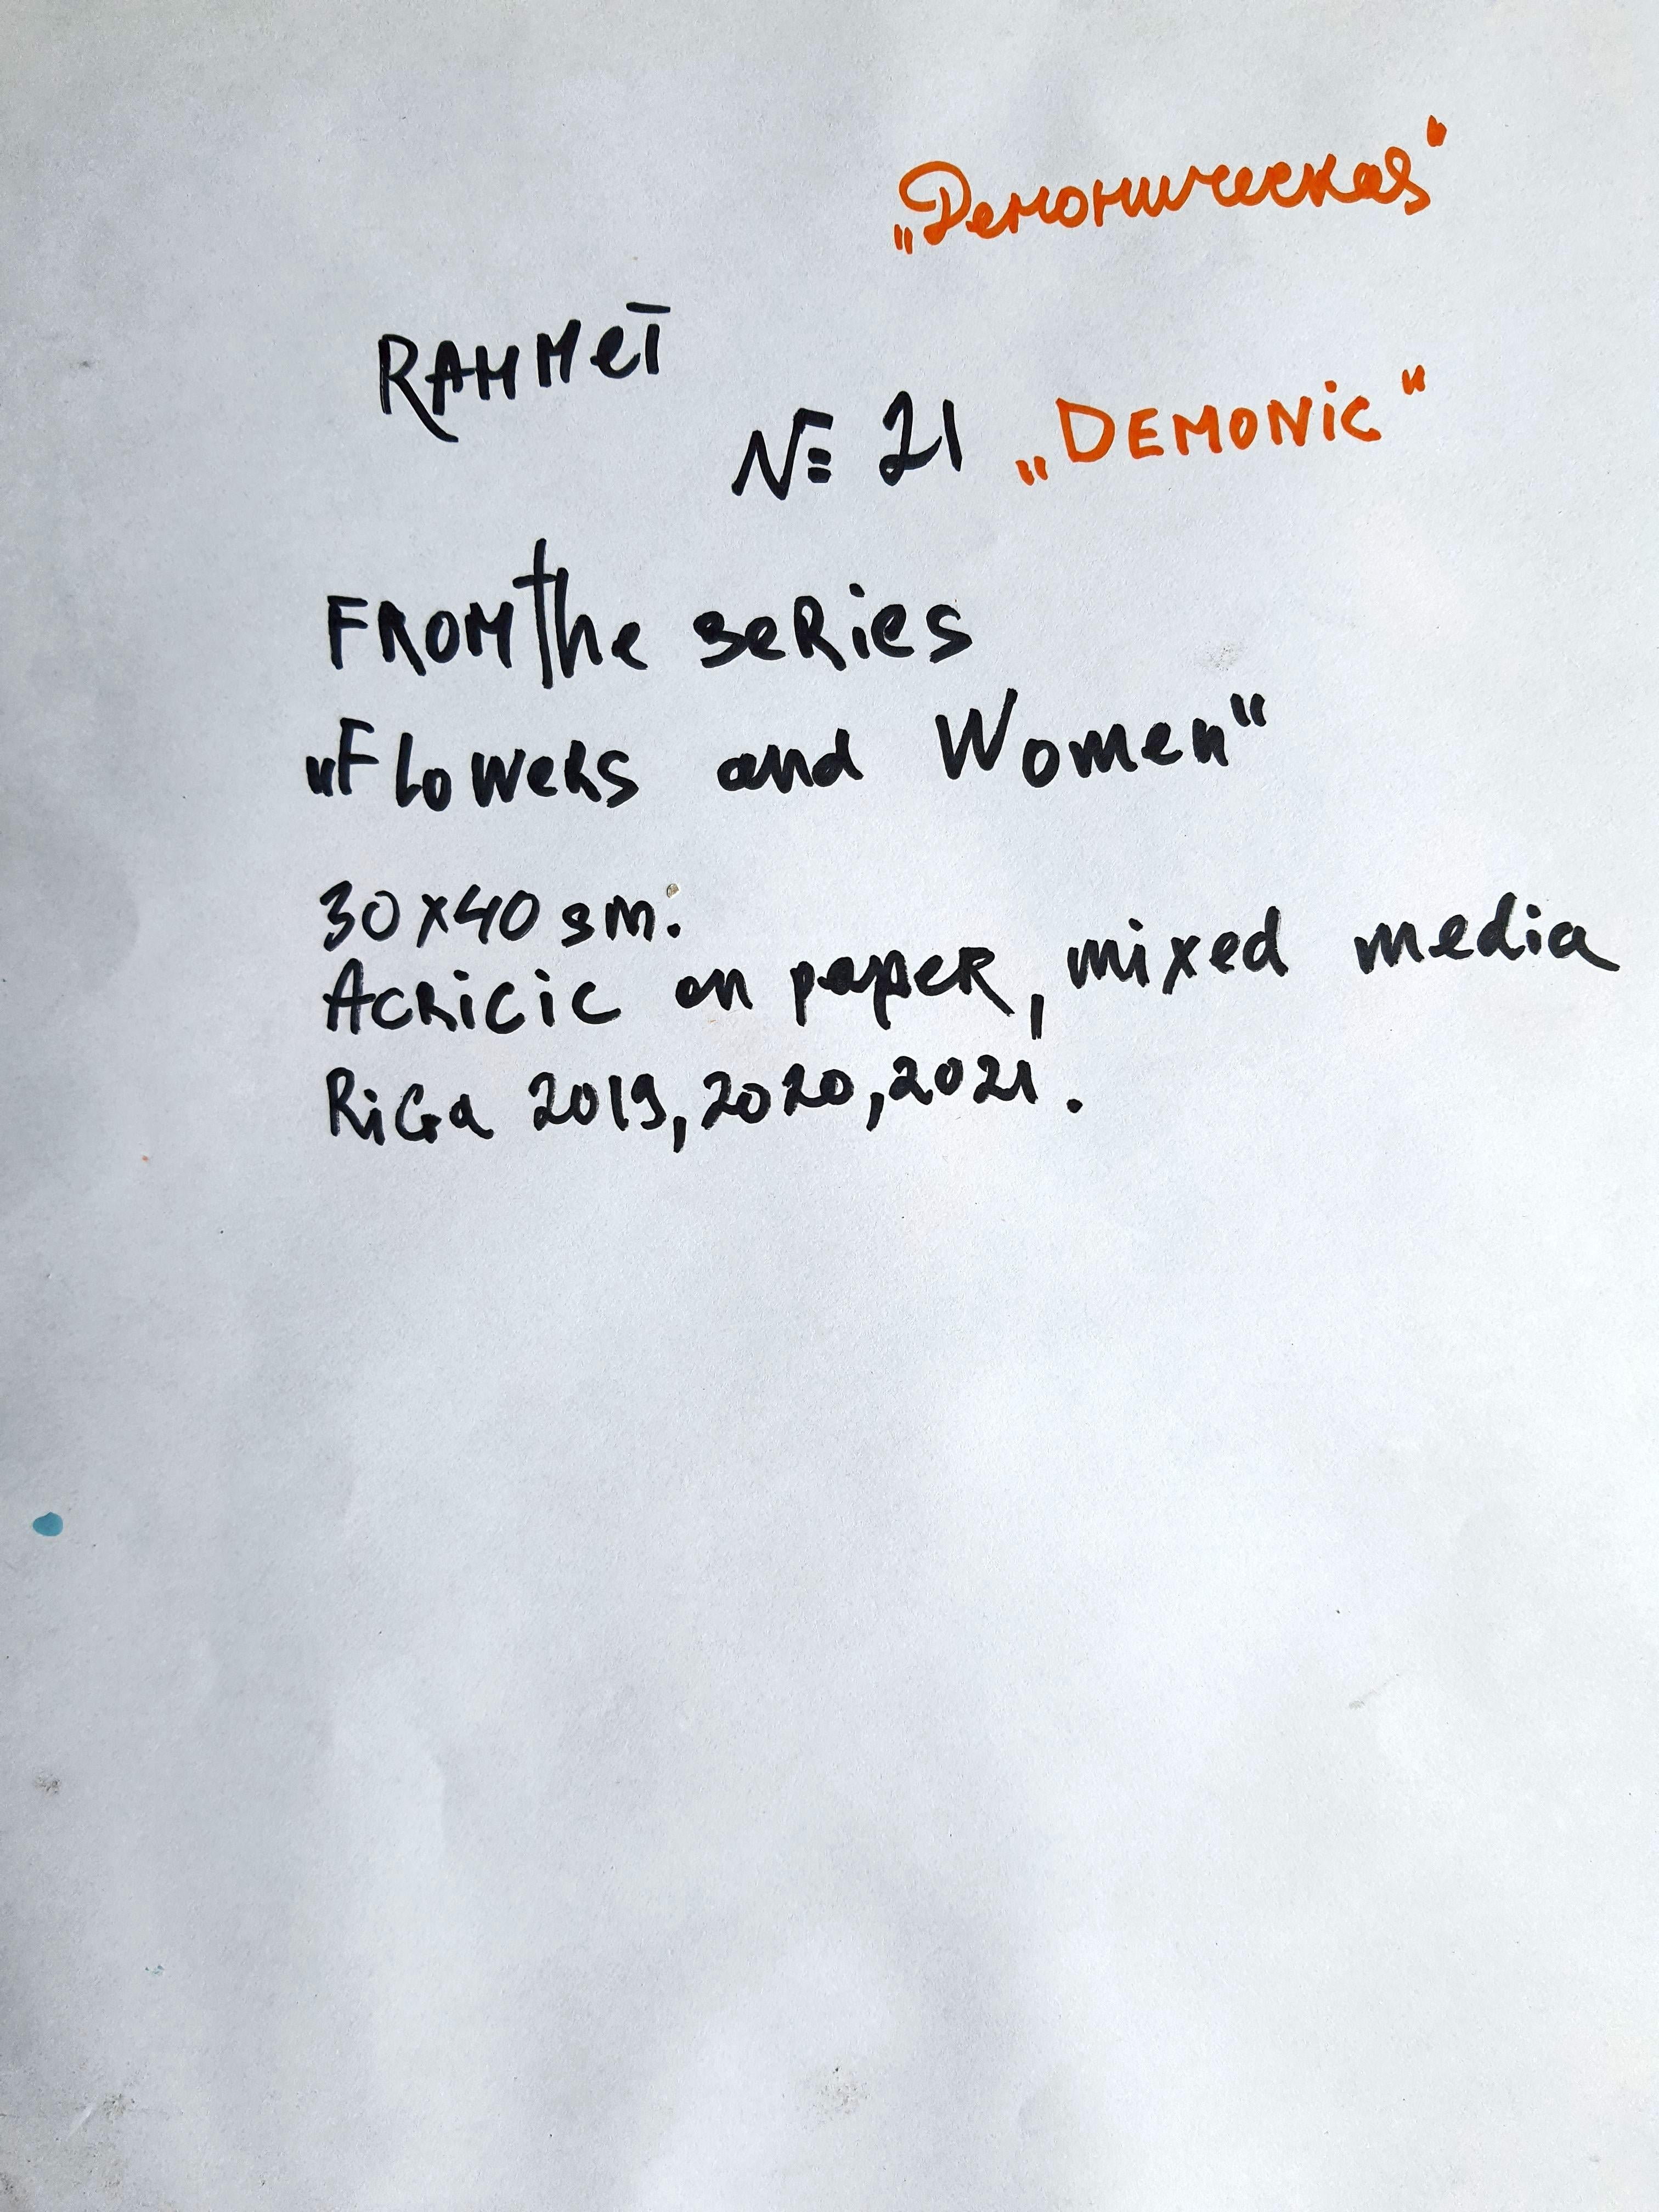 „Демоническая"
RAHMET
№ 21 „DEMONiC"
FROM the seRies
„FLoweRs and Women"
30x40 sm.
ACRiCiC on papeR, mixed media
RiGa 2019, 2020, 2021.